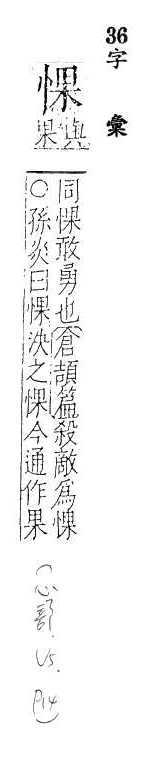 36
字彙
惈
與果
同惈敢勇也倉頡篇殺敵為惈
○孫炎曰惈決之惈今通作果
(心部. V5. P14)